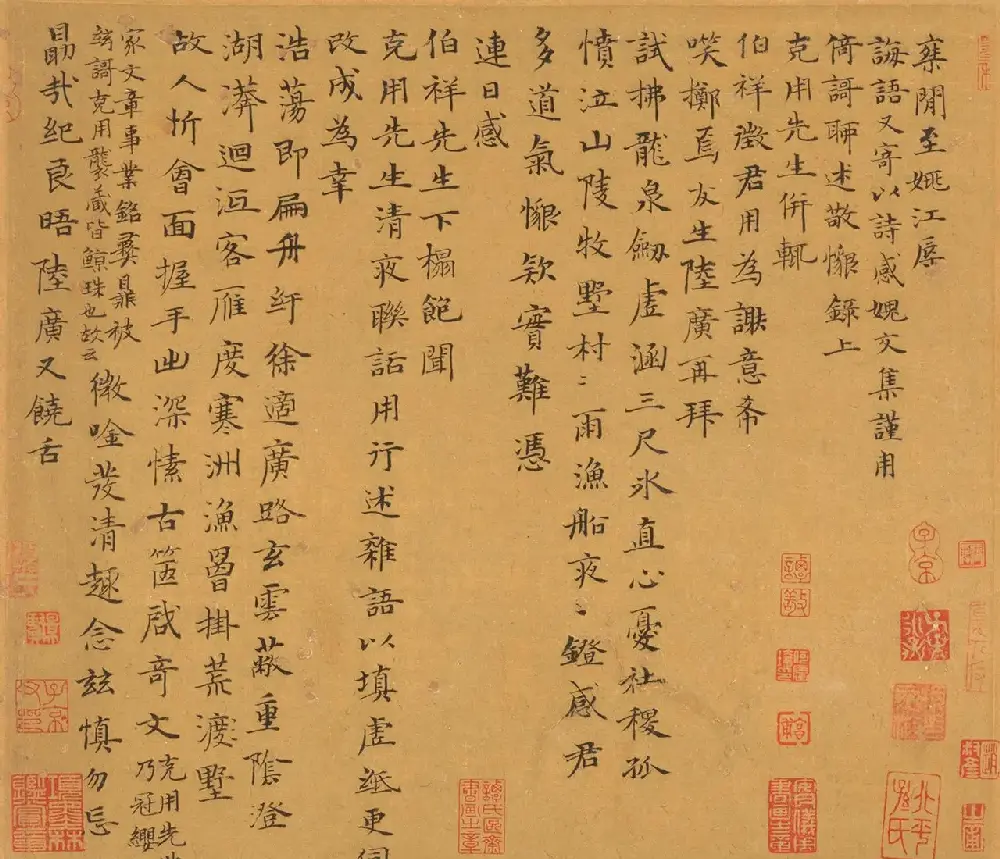 閒至姚江辱
誨語又寄以詩感媿交集謹用
倚謌聊述敬懷錄上
克用先生併輒
伯祥徵君用為謝意希
咲擲焉友生陸廣再拜
試拂龍泉劔虛涵三尺冰直心憂社稷孤
憤泣山陵牧墅村〻雨漁船夜〻鐙感君
多道氣懷欵實難憑
連日感
伯祥先生下榻飽聞
克用先生清夜聯話用行述雜語以填虛紙更伺
改成為幸
浩蕩即扁舟紆徐適廣路玄雲蔽重陰澄
湖漭迴沍客雁度寒洲漁罾掛荒渡墅
故人忻會面握手出深愫古篋啟奇文
克用先世
乃冠纓
家文章事業銘彝鼎被
謌克用襲藏皆鯨珠也故云
微唫發清趣念茲慎勿忘
勗哉紀良晤陸廣又饒舌
子京
譚氏區齋書畫之章
項墨林鑑賞章